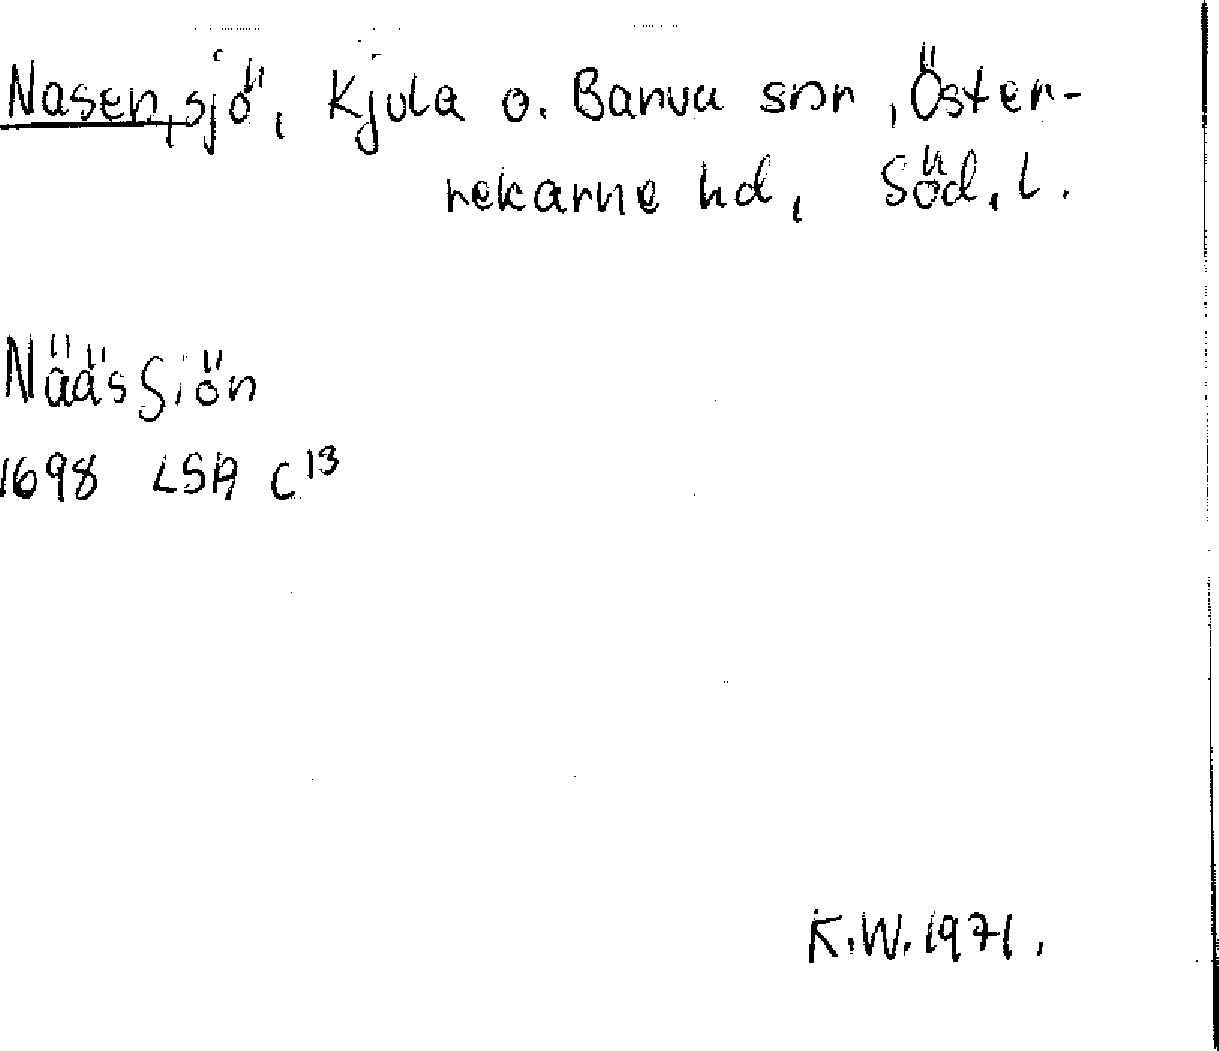 Nasen, sjö, Kjula o. Barva snr, Öster-
rekarne hd, Söd. l.
Nääs Siön
1698 LSA C13
K.W. 1971.